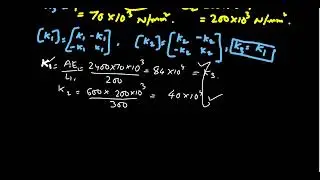 = 70×10³ N/mm². = 200×10³ N/mm².
[K₁] = [K₁ -K₁ -K₁ K₁], [K₂] = [K₂ -K₂ -K₂ K₂], K₃ = K₁
K₁ = AE₁/L₁ = 2400×70×10³/200 = 84×10⁴ = K₃.
K₂ = 600×200×10³/300 = 40×10⁴